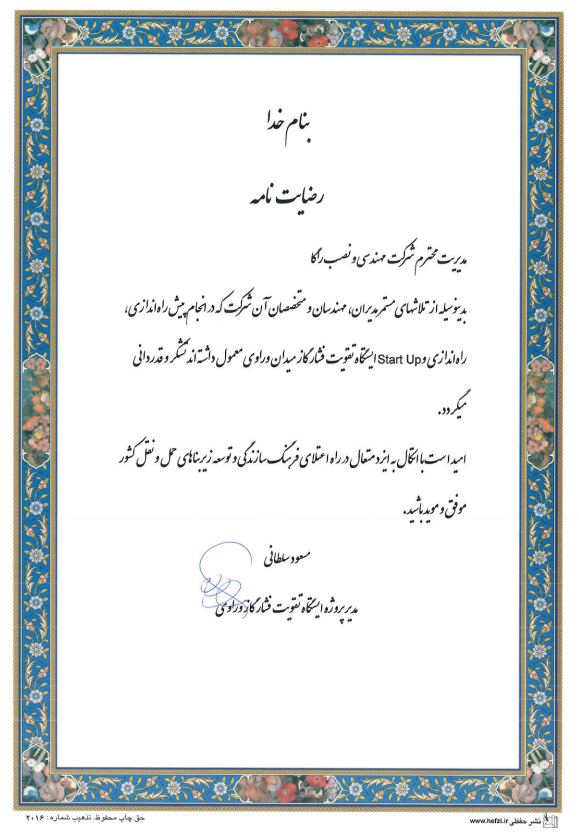 بنام خدا
رضایت نامه
مدیریت محترم شرکت مهندسی و نصب راگا
بدینوسیله از تلاشهای مستمر مدیران، مهندسان و متخصصان آن شرکت که در انجام پیش راه اندازی،
راه اندازی و Start Up ایستگاه تقویت فشار گاز میدان وراوی معمول داشته اند تشکر و قدردانی
میگردد.
امید است با اتکال به ایزد متعال در راه اعتلای فرهنگ سازندگی و توسعه زیربناهای حمل و نقل کشور
موفق و موید باشید.
مسعود سلطانی
مدیر پروژه ایستگاه تقویت فشار گاز وراوی
نشر حفظی www.hefzi.ir
حق چاپ محفوظ. تذهیب شماره : ۲۰۱۶